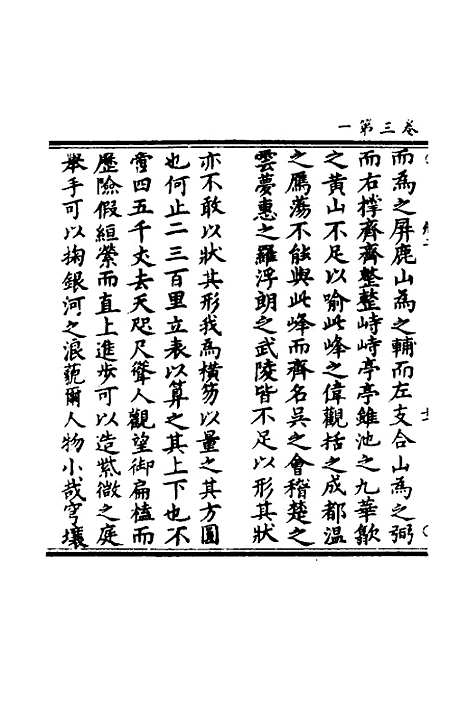 一第三卷
而為之屏鹿山為之輔而左支合山為之弼
而右撐齊齊整整峙峙亭亭雖池之九華歙
之黃山不足以喻此峰之偉觀括之成都溫
之鴈蕩不能與此峰而齊名吳之會稽楚之
雲夢惠之羅浮朗之武陵皆不足以形其狀
亦不敢以狀其形我為橫笏以量之其方圓
也何止二三百里立表以算之其上下也不
啻四五千丈去天咫尺聳人觀望御扁榼而
歷險假絙縈而直上進步可以造紫微之庭
舉手可以掬銀河之浪藐爾人物小哉穹壤